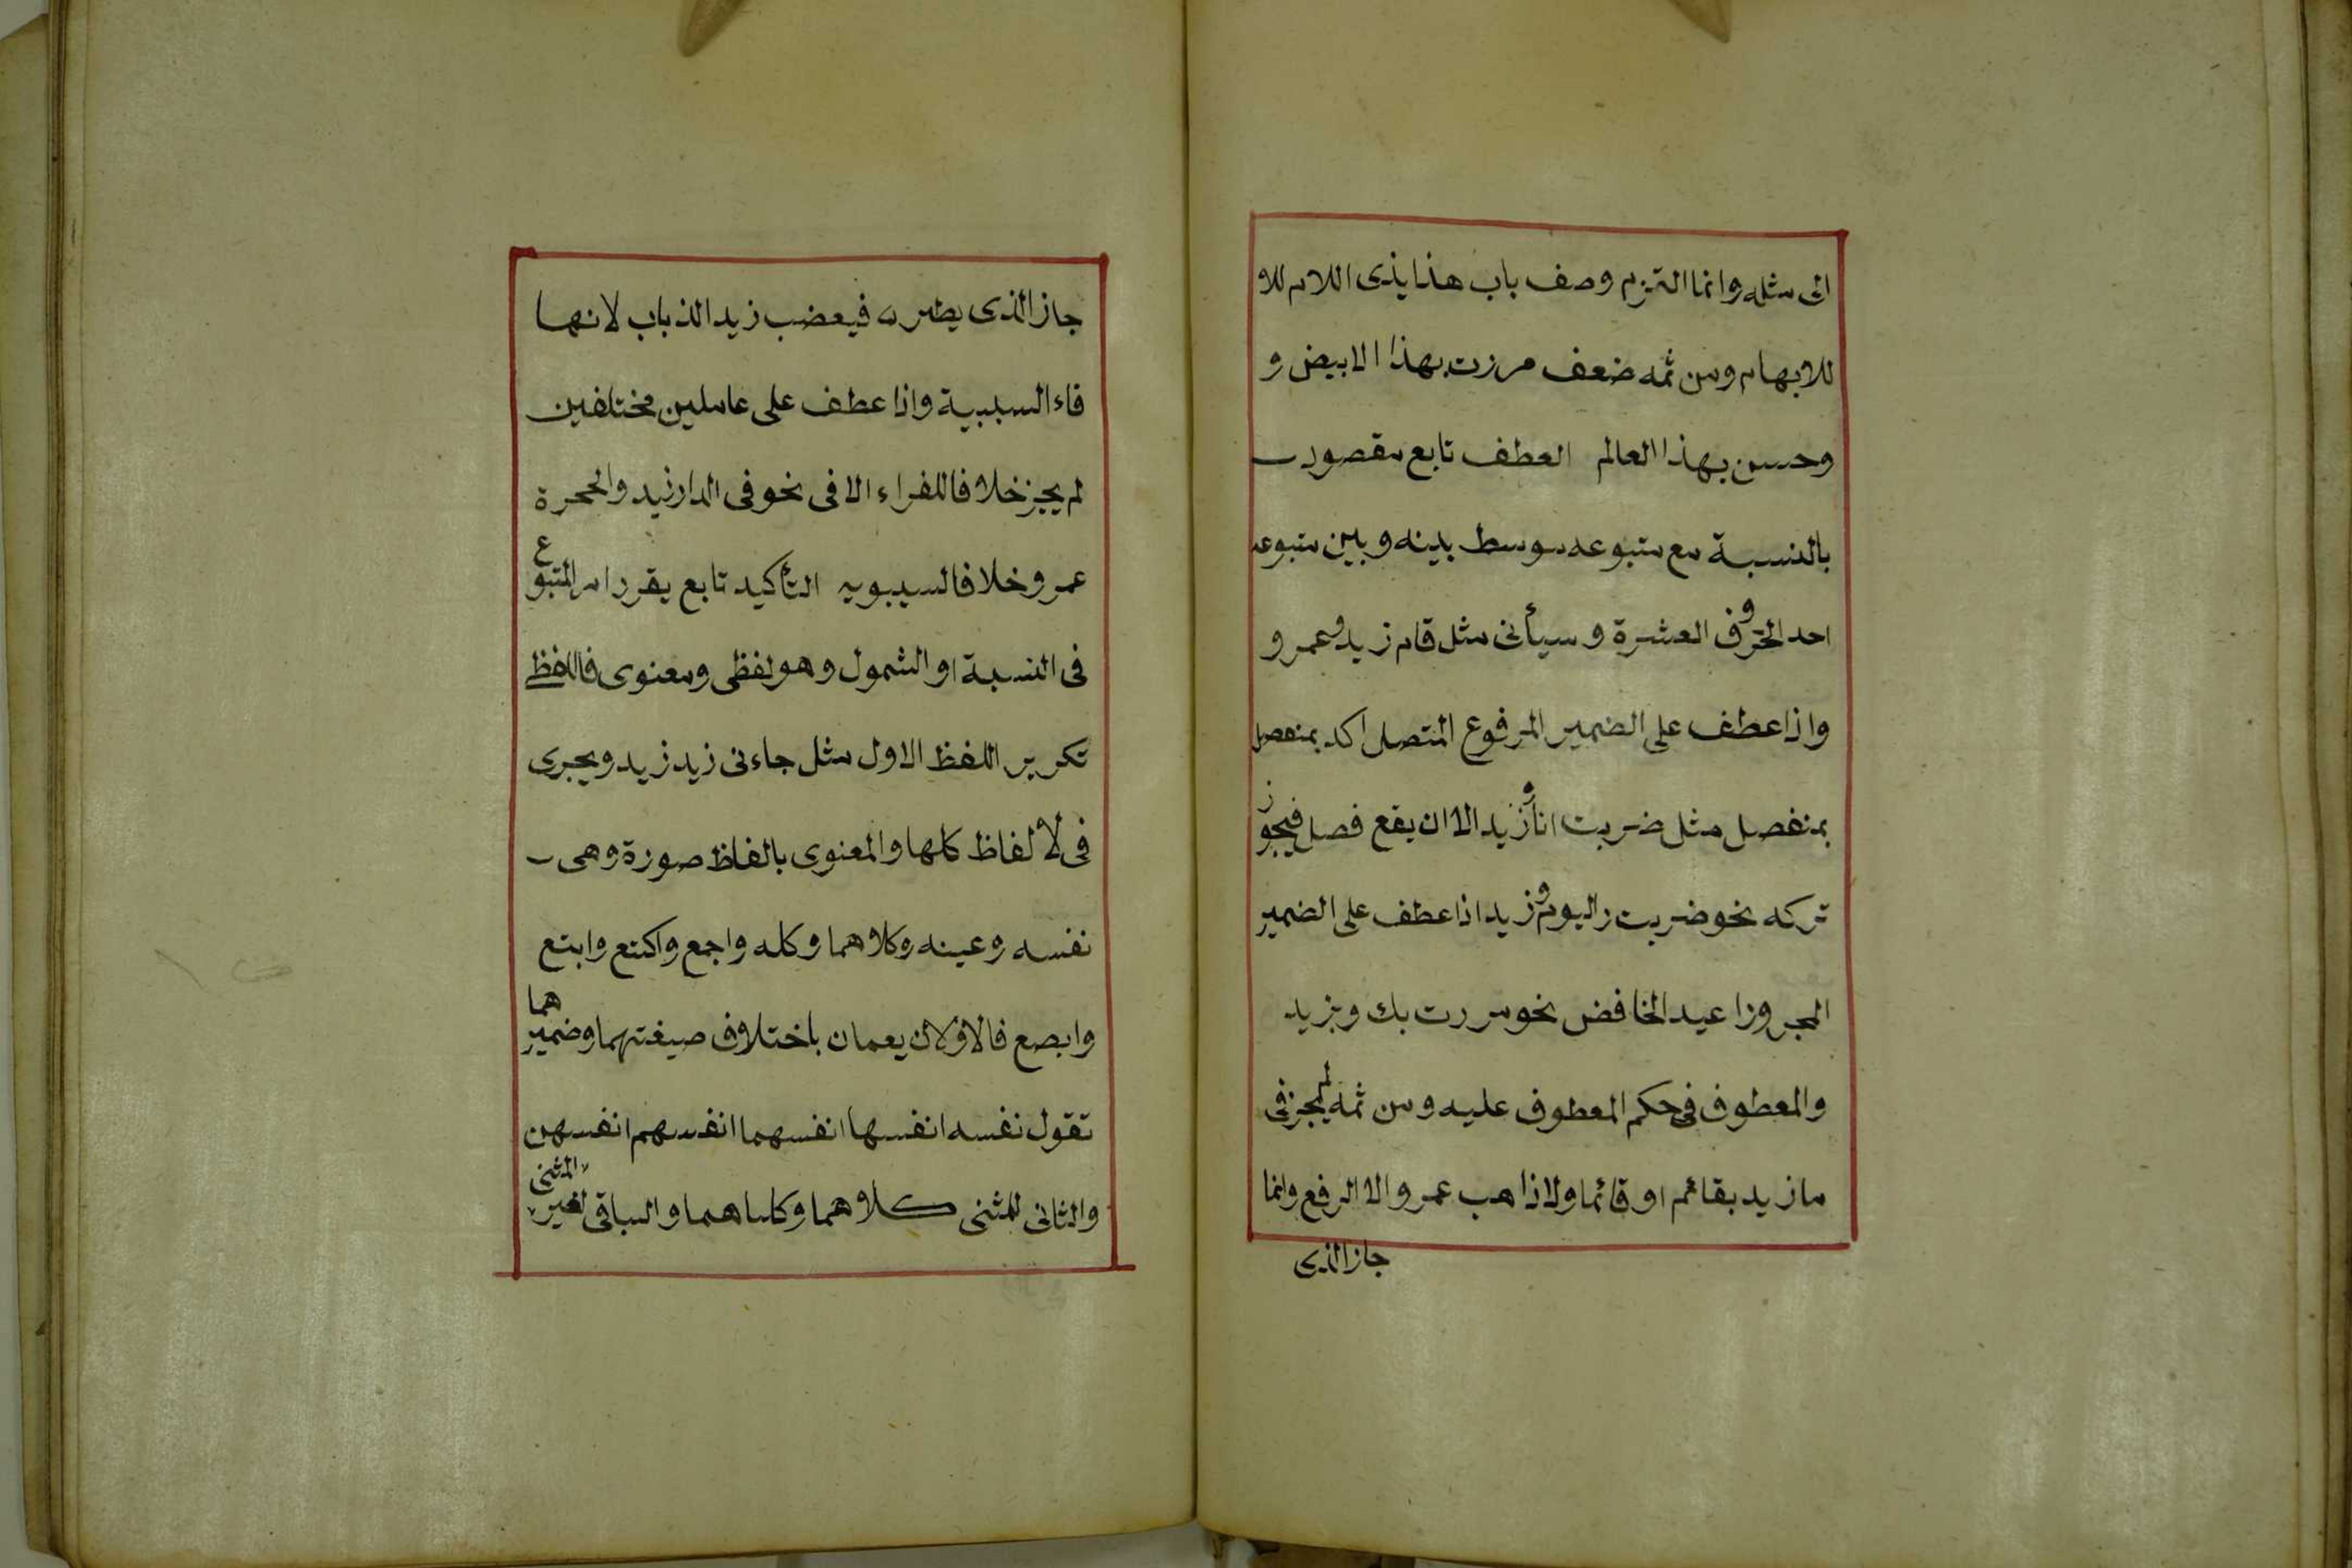 الى مثله وانما التزم وصف باب هذا بذى اللام للا
للابهام ومن ثمه ضعف مرزت بهذا الابيض و
وحسن بهذا العالم العطف تابع مقصود
بالنسبة مع متبوعه سوسط بينه وبين متبوعه
احد الحروف العشرة وسيأتى مثل قام زيد وعمرو
واذا عطف على الضمير المرفوع المتصل اكد بمنفصل
بمنفصل مثل ضربت انا وزيد الا ان يقع فصل فيجوز
تركه نحو ضربت اليوم وزيد اذا عطف على الضمير
المجرور اعيد الخافض نحو مررت بك وبزيد
والمعطوف فى حكم المعطوف عليه ومن ثمه لم يجز فى
ما زيد بقائم او قائما ولا ذاهب عمرو الا الرفع وانما
جاز الذى
جاز الذى يطير فيغضب زيد الذباب لانها
فاء السببية واذا عطف على عاملين مختلفين
لم يجز خلافا للفراء الا فى نحو فى الدار زيد والحجرة
عمرو خلافا لسيبويه التأكيد تابع يقرر امر المتبوع
فى النسبة او الشمول وهو لفظى ومعنوى فاللفظ
تكرير اللفظ الاول مثل جاءنى زيد زيد ويجرى
فى لالفاظ كلها والمعنوى بالفاظ صورة وهى
نفسه وعينه وكلاهما وكله واجمع واكتع وابتع
وابصع فالاولان يعمان باختلاف صيغتهما وضميرهما
تقول نفسه انفسها انفسهما انفسهم انفسهن
والثانى للمثنى كلاهما وكلتاهما والباقى لغير المثنى